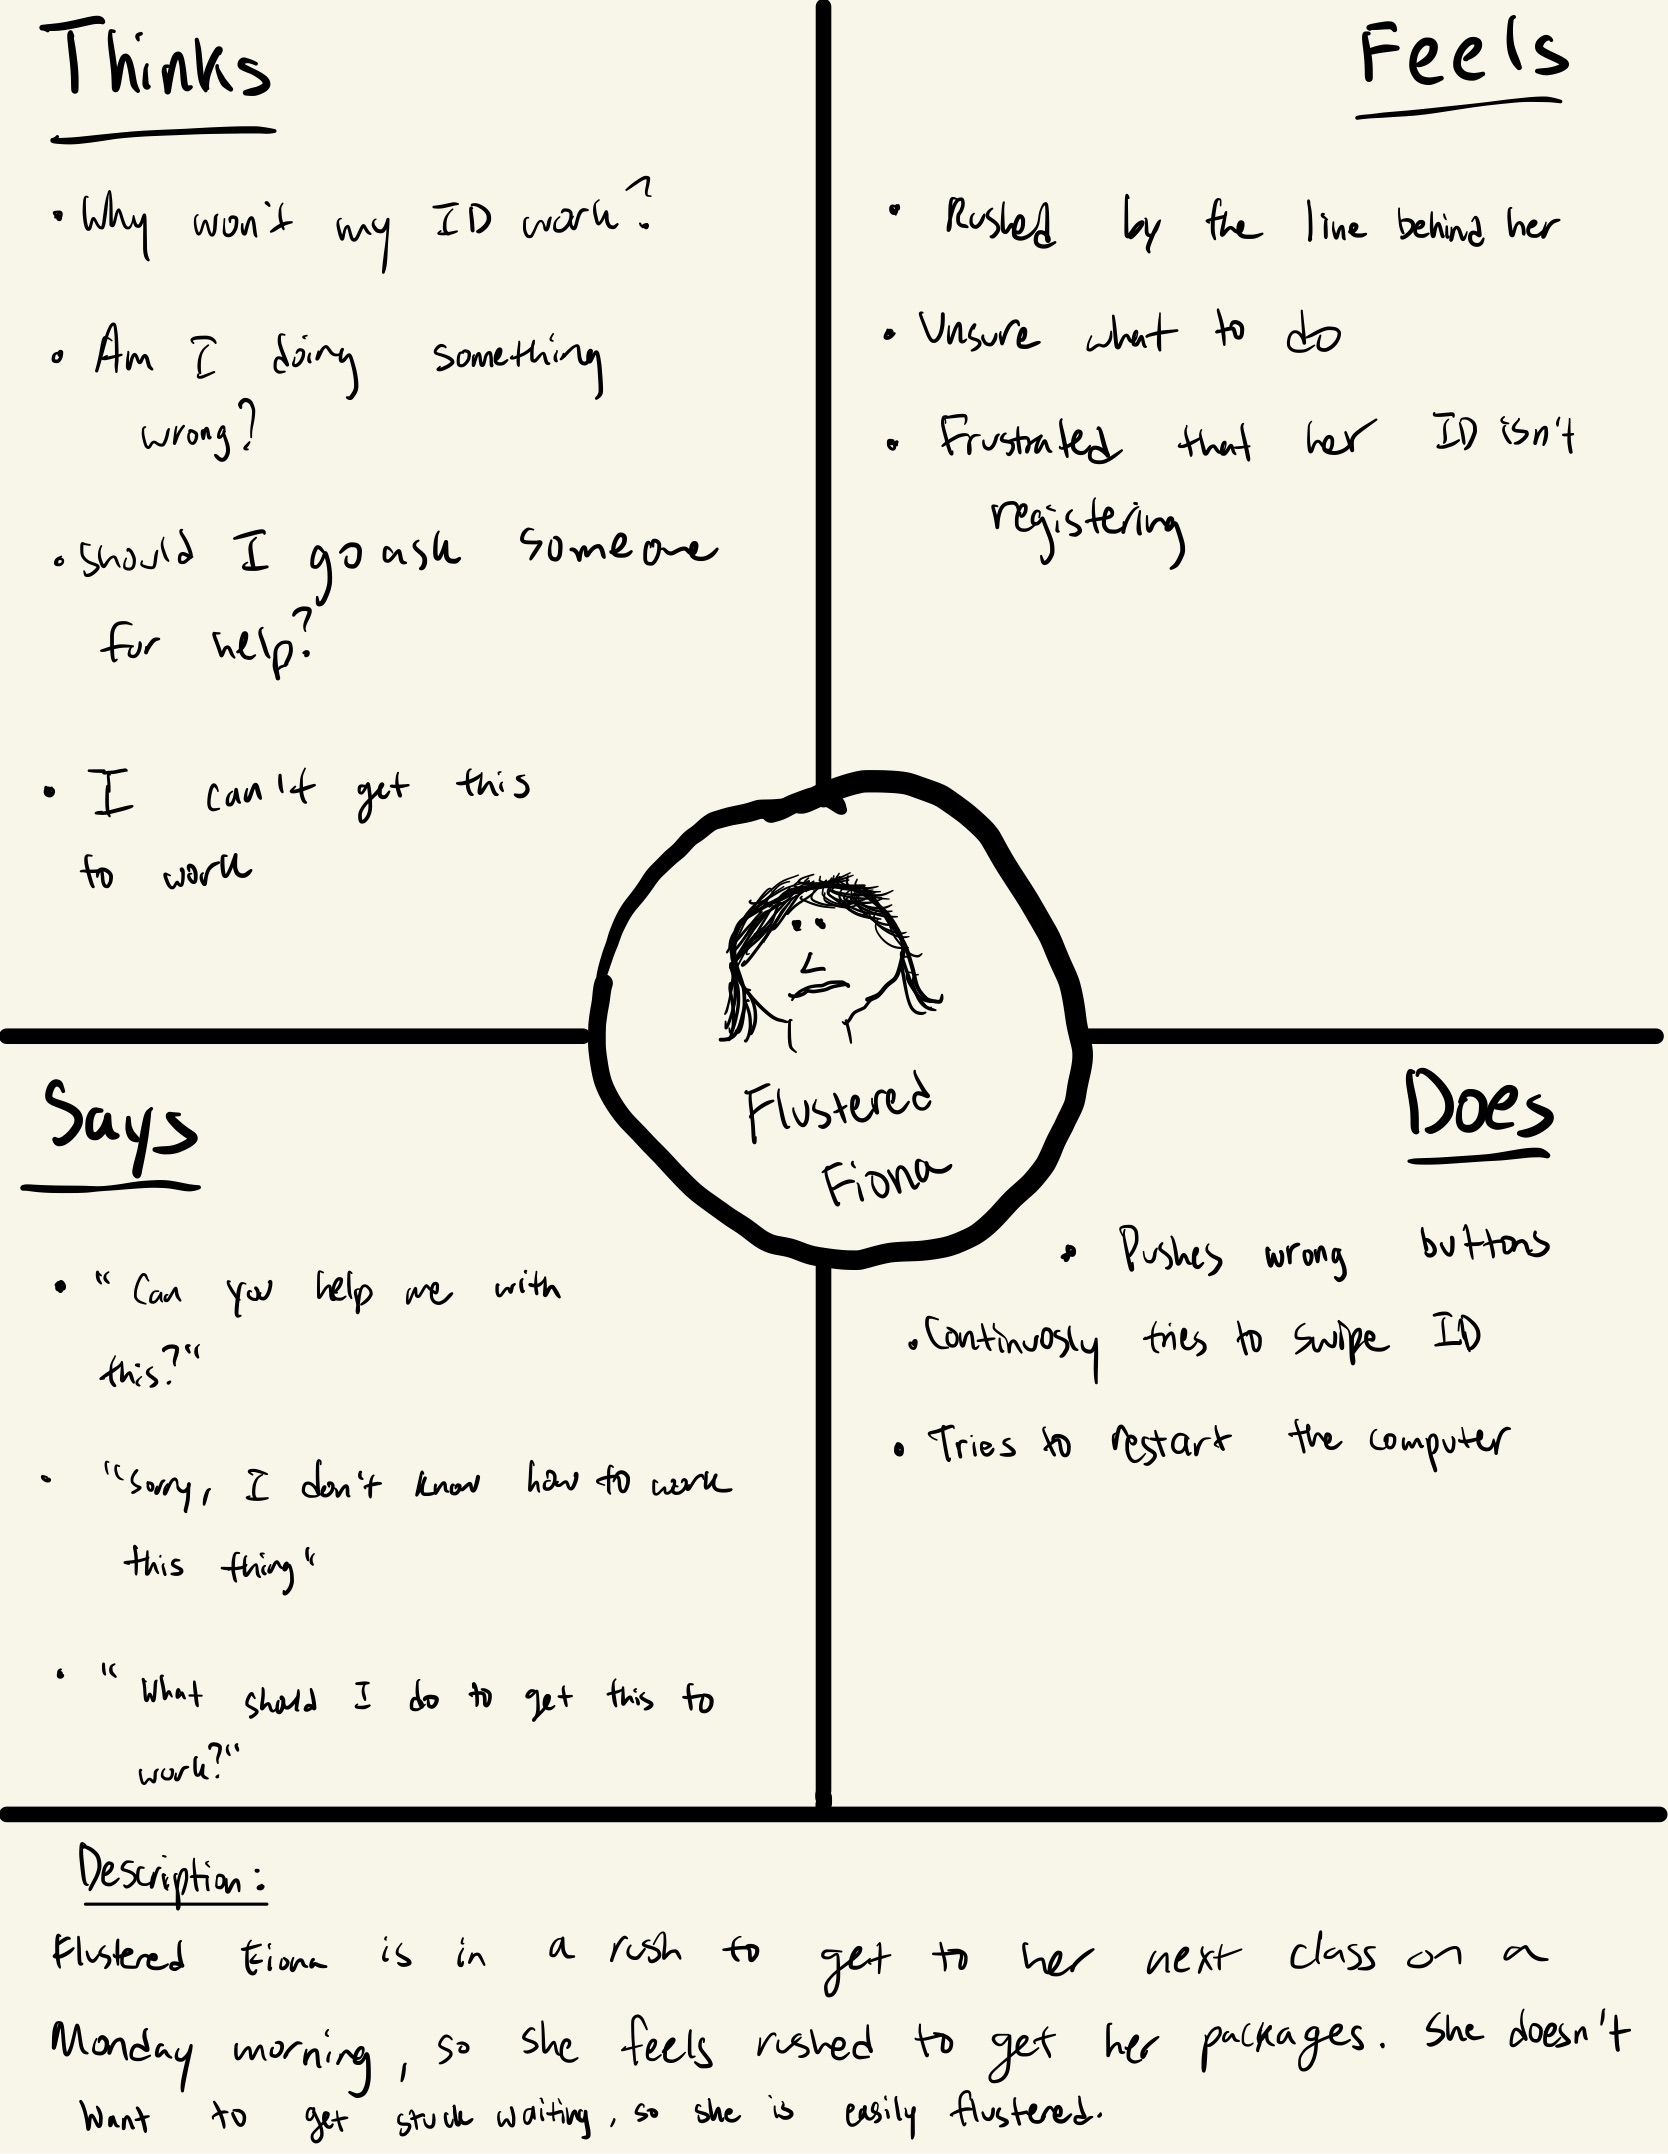 Thinks
• Why won't my ID work?
• Am I doing something
wrong?
• should I go ask someone
for help?
• I can't get this
to work
Feels
• Rushed by the line behind her
• Unsure what to do
• Frustrated that her ID isn't
registering
Flustered
Fiona
Says
• "Can you help me with
this?"
• "Sorry, I don't know how to work
this thing"
• "What should I do to get this to
work?"
Does
• Pushes wrong buttons
• Continuosly tries to swipe ID
• Tries to restart the computer
Description:
Flustered Fiona is in a rush to get to her next class on a
Monday morning, so she feels rushed to get her packages. She doesn't
want to get stuck waiting, so she is easily flustered.